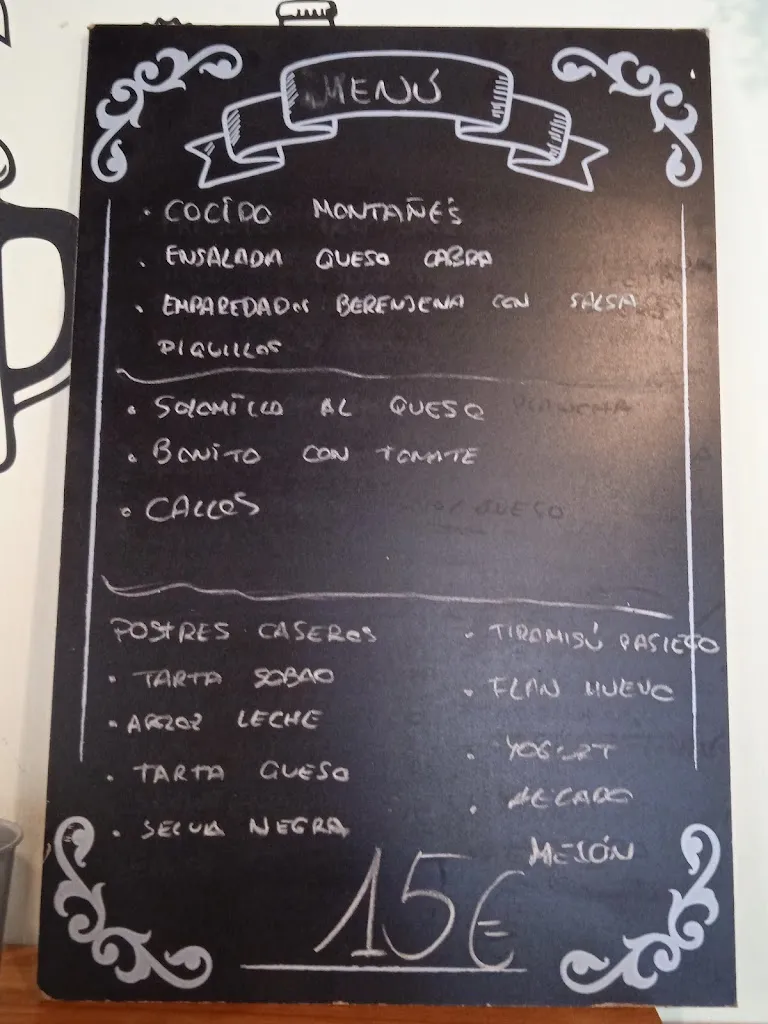 MENÚ
• COCIDO MONTAÑÉS
• ENSALADA QUESO CABRA
• EMPAREDADOS BERENJENA CON SALSA
PIQUILLOS
• SOLOMILLO AL QUESO
• BONITO CON TOMATE
• CALLOS
POSTRES CASEROS
• TARTA SOBAO
• ARROZ LECHE
• TARTA QUESO
• SELVA NEGRA
• TIRAMISÚ PASIEGO
• FLAN HUEVO
• YOGURT
• HELADO
MELÓN
15€